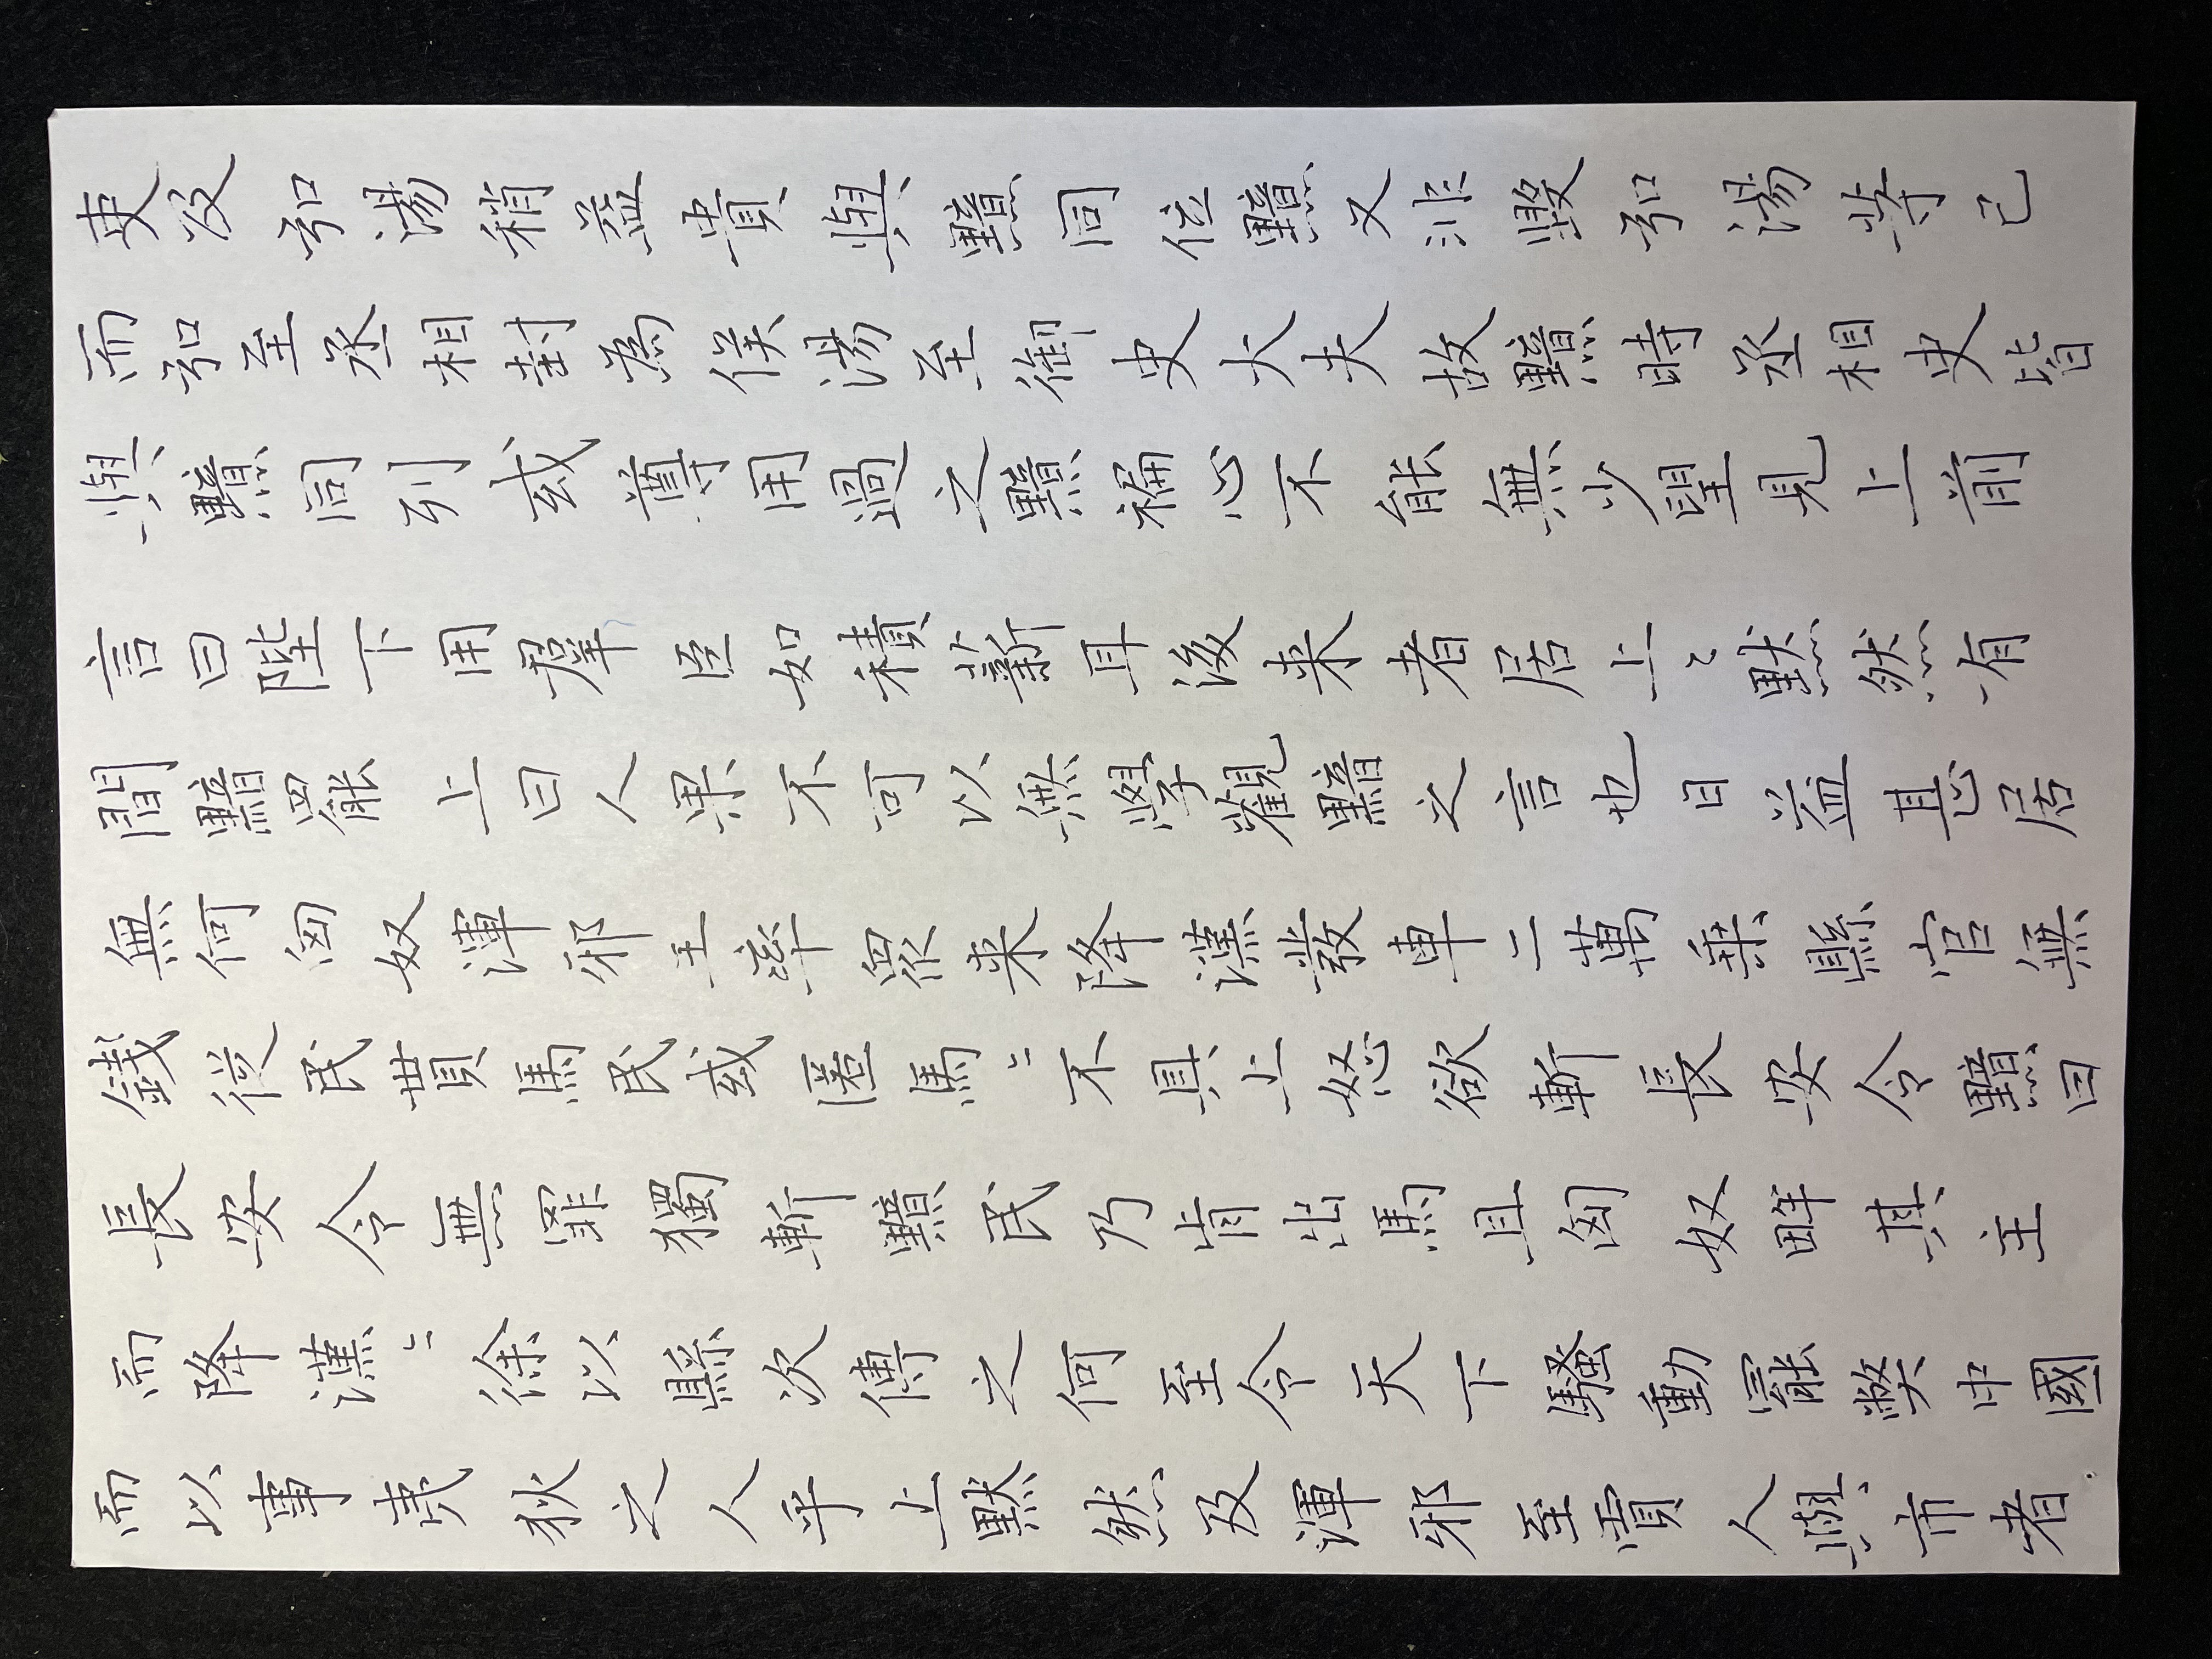 吏及弘湯稍益貴與黯同位黯又非毀弘湯等已
而弘至丞相封為侯湯至御史大夫故黯時丞相史皆
與黯同列或尊用過之黯褊心不能無少望見上前
言曰陛下用群臣如積薪耳後来者居上〻默然有
間黯罷上曰人果不可以無學觀黯之言也日益甚居
無何匈奴渾邪王率眾来降漢發車二萬乘縣官無
錢從民貰馬民或匿馬〻不具上怒欲斬長安令黯曰
長安令無罪獨斬黯民乃肯出馬且匈奴畔其主
而降漢〻徐以縣次傳之何至令天下騷動罷弊中國
而以事夷狄之人乎上默然及渾邪至賈人與市者